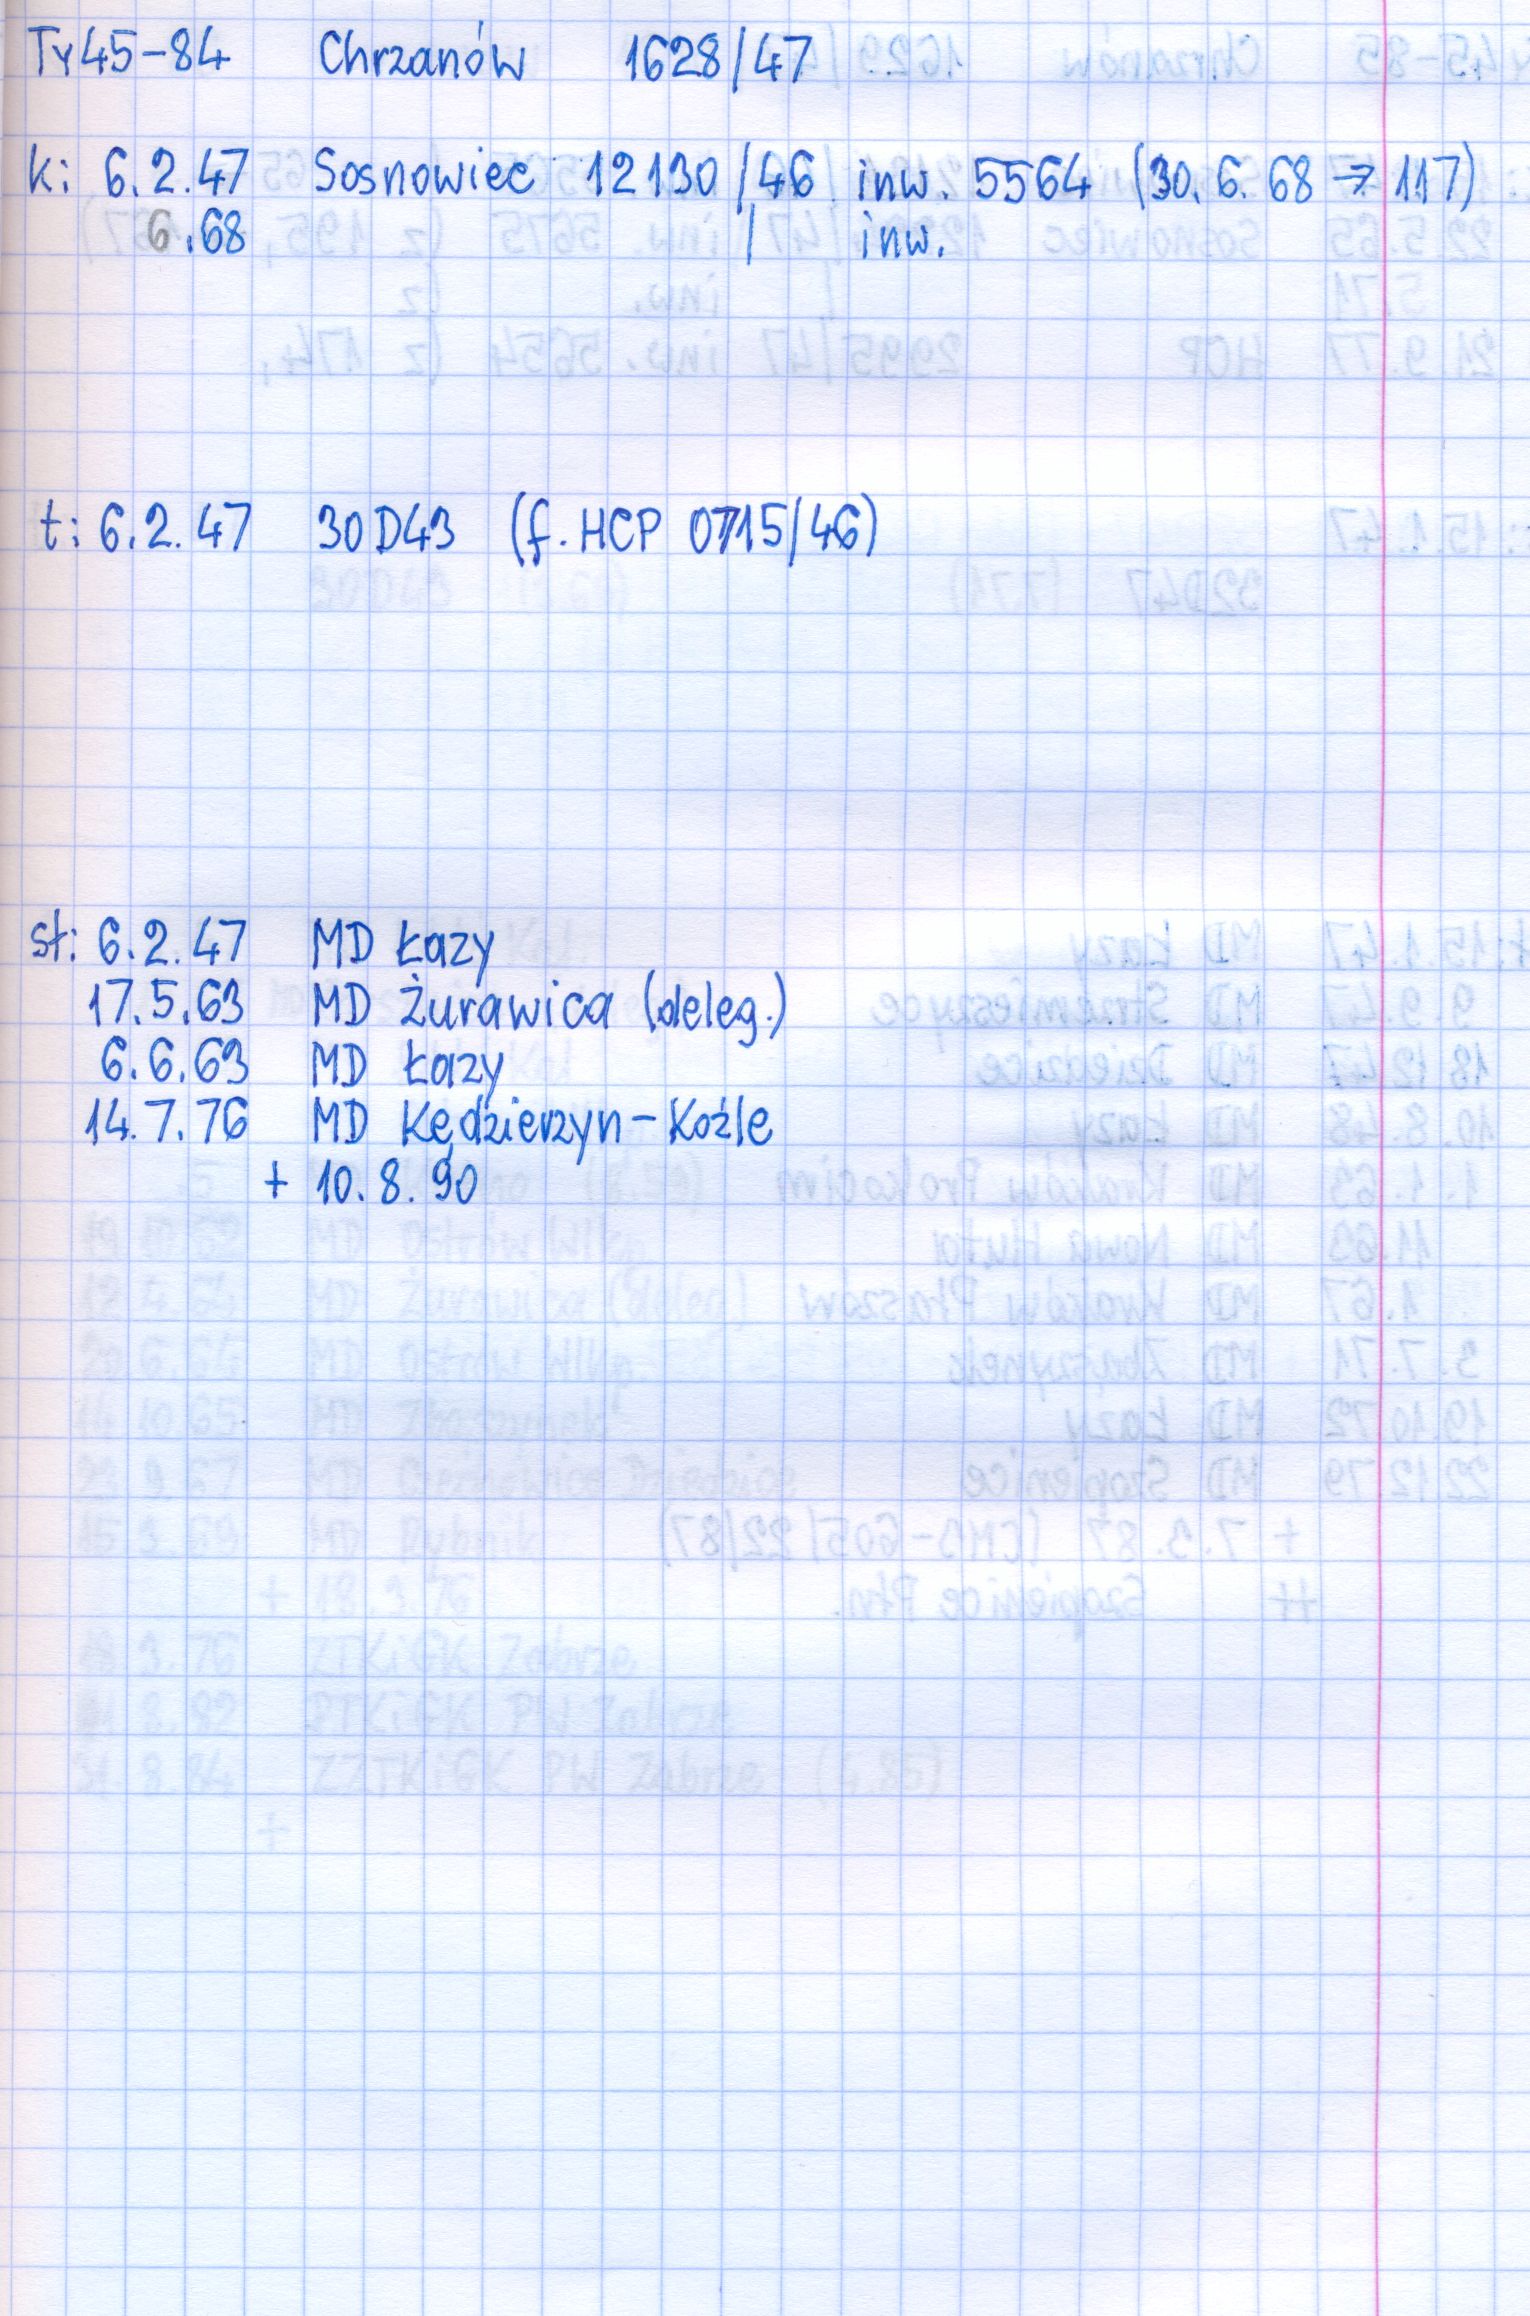 Ty45-84 Chrzanów 1628/47
k: 6.2.47 Sosnowiec 12130/46 inw. 5564 (30.6.68 → 117)
6.68 / inw.
t: 6.2.47 30D43 (f. HCP 0715/46)
st: 6.2.47 MD Łazy
17.5.63 MD Żurawica (deleg.)
6.6.63 MD Łazy
14.7.76 MD Kędzierzyn-Koźle
+ 10.8.90